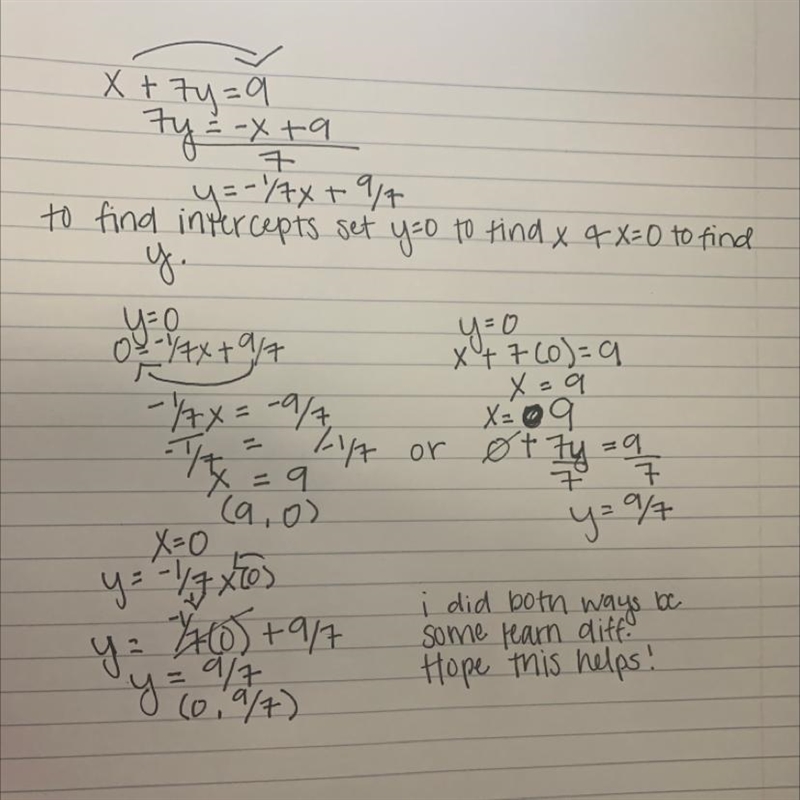 x + 7y = 9
7y = -x + 9
7
y = -1/7x + 9/7
to find intercepts set y=0 to find x & x=0 to find
y.
y=0
0 = -1/7x + 9/7
-1/7x = -9/7
-1/7 = /-1/7
x = 9
(9, 0)
x=0
y = -1/7x(0)
y = -1/7(0) + 9/7
y = 9/7
(0, 9/7)
or
y=0
x + 7(0) = 9
x = 9
x = 9
0 + 7y = 9
7 7
y = 9/7
i did both ways bc
some learn diff.
Hope this helps!